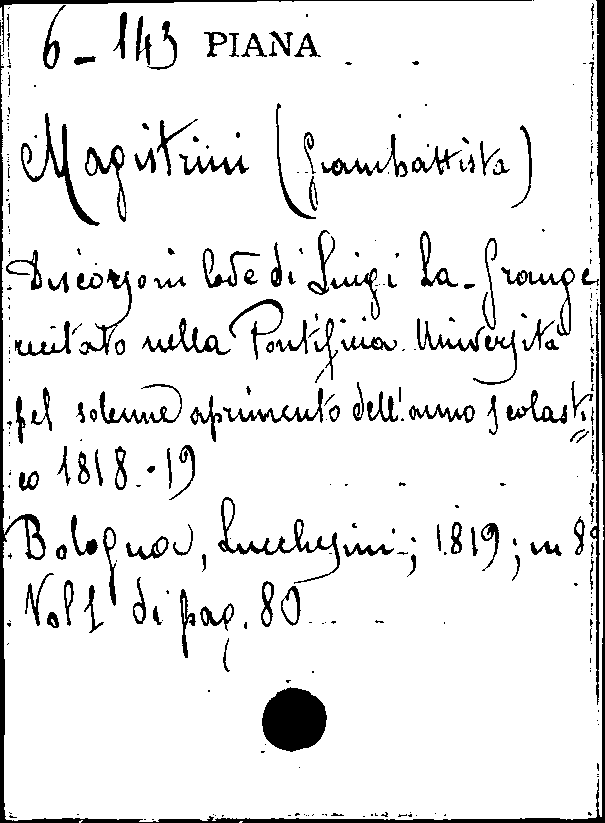 6-143 PIANA
Magistrini (Giambattista)
Discorso in lode di Luigi La-Grange
recitato nella Pontificia Università
pel solenne aprimento dell'anno scolasti=
co 1818-19
Bologna, Lucchesini; 1819; in 8º
Vol 1 di pag. 80